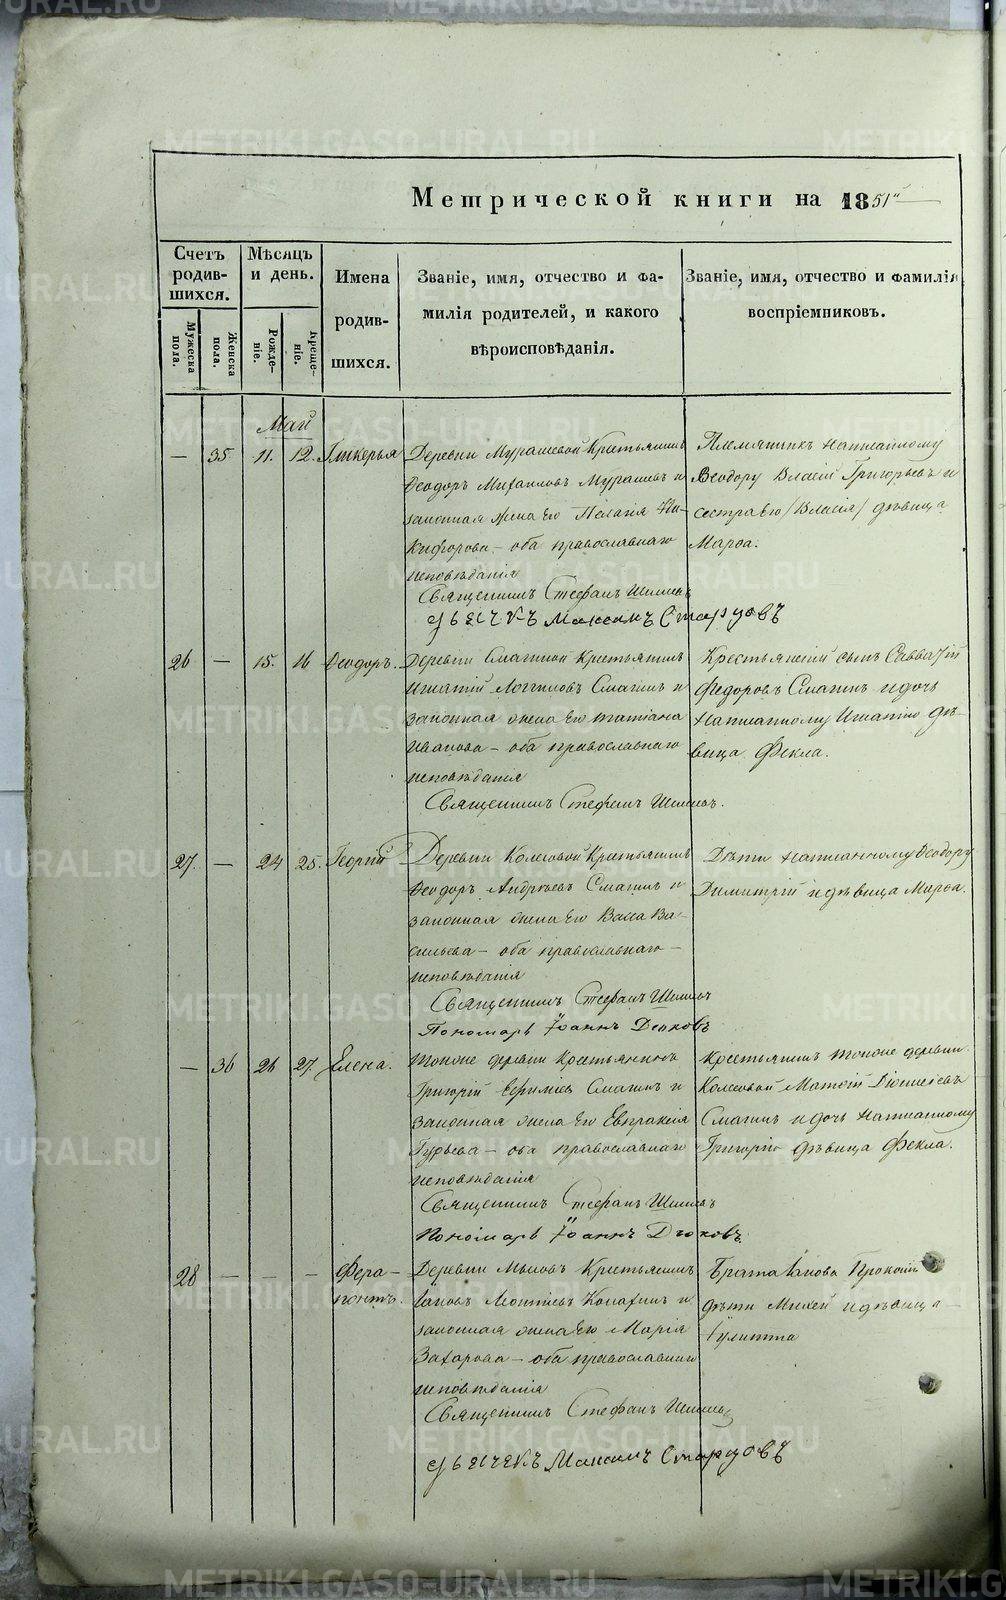 Метрической книги на 1851й
Счетъ родив-шихся.
Мѣсяцъ и день.
Имена родив-шихся.
Званіе, имя, отчество и фа-
милія родителей, и какого
вѣроисповѣданія.
Званіе, имя, отчество и фамилія
воспріемниковъ.
Мужеска пола.
Женска пола.
Рожде-ніе.
Креще-ніе.
Май
— 35 11. 12. Гликерья
Деревни Мурашевой Крестьянинъ
Ѳеодоръ Михаиловъ Мурашевъ и
законная жена его Пелагія Ни-
кифорова — оба православнаго
исповѣданія
Священникъ Стефанъ
Дьячекъ Максимъ Старцовъ
Племянникъ написанному
Ѳеодору Власій Григорьевъ и
сестра его /Власія/ дѣвица
Марѳа.
26 — 15. 16 Ѳеодоръ.
Деревни Смагиной Крестьянинъ
Игнатій Логгиновъ Смагинъ и
законная жена его Татіана
Иванова — оба православнаго
исповѣданія
Священникъ Стефанъ
Крестьянскій сынъ Савватій
Федоровъ Смагинъ и дочь
написанному Игнатію дѣ-
вица Фекла.
27. — 24 25. Георгій
Деревни Колесовой Крестьянинъ
Ѳеодоръ Андреевъ Смагинъ и
законная жена его Васса Ва-
сильева — оба православнаго —
исповѣданія
Священникъ Стефанъ
Пономарь Іоаннъ
Дѣти написанному Ѳеодору
Димитрій и дѣвица Марѳа.
— 36 26 27. Елена.
Тойже деревни Крестьянинъ
Григорій Ефимовъ Смагинъ и
законная жена его Евпраксія
Гурьева — оба православнаго
исповѣданія
Священникъ Стефанъ
Пономарь Іоаннъ
Крестьянинъ тойже деревни
Колесовой Матѳій Діонисіевъ
Смагинъ и дочь написанному
Григорію дѣвица Фекла.
28 — — — Фера-
понтъ.
Деревни Крестьянинъ
Іаковъ Леонтіевъ и
законная жена его Марія
Захарова — оба православнаго
исповѣданія
Священникъ Стефанъ
Дьячекъ Максимъ Старцовъ
Брата Іакова Прокопія
дѣти Михей и дѣвица —
Іулитта
METRIKI.GASO-URAL.RU